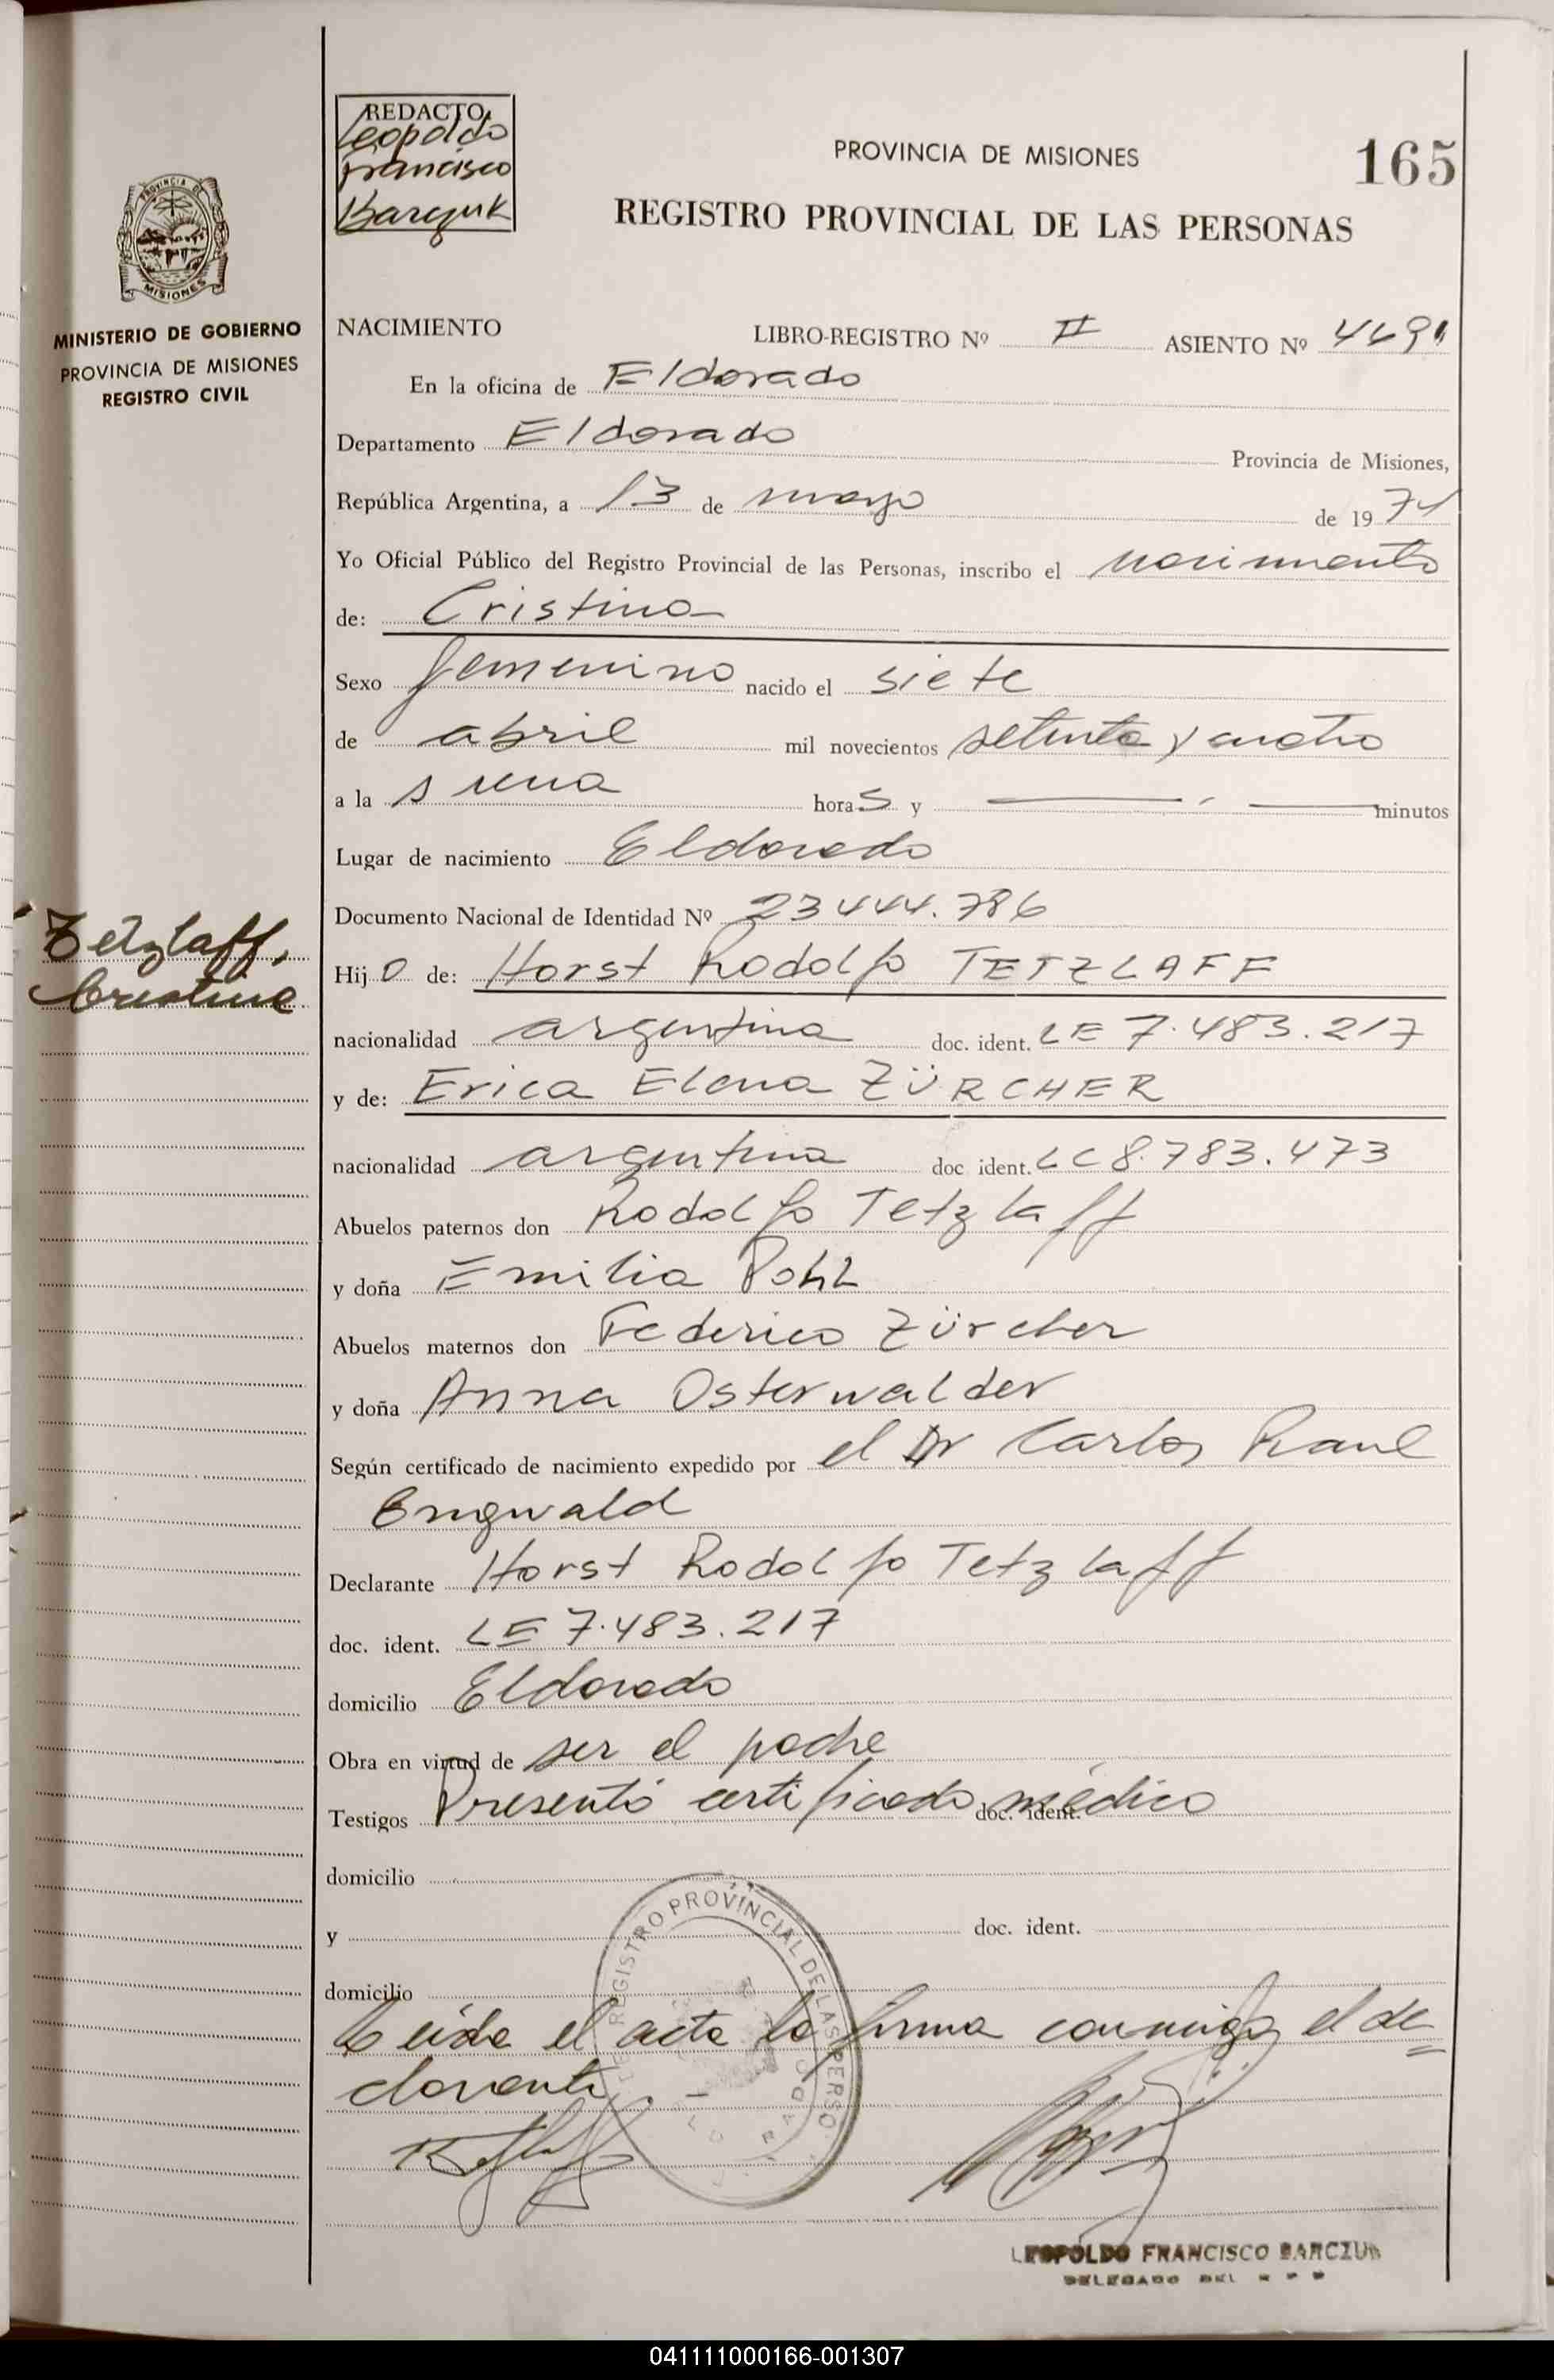 REDACTO
Leopoldo
Francisco
Barczuk
PROVINCIA DE MISIONES
165
REGISTRO PROVINCIAL DE LAS PERSONAS
PROVINCIA DE
MISIONES
MINISTERIO DE GOBIERNO
PROVINCIA DE MISIONES
REGISTRO CIVIL
NACIMIENTO LIBRO-REGISTRO Nº II ASIENTO Nº
En la oficina de Eldorado
Departamento Eldorado Provincia de Misiones,
República Argentina, a 13 de mayo de 1974
Yo Oficial Público del Registro Provincial de las Personas, inscribo el nacimiento
de: Cristina
Sexo femenino nacido el siete
de abril mil novecientos setenta y cuatro
a la s una horas y minutos
Lugar de nacimiento Eldorado
Documento Nacional de Identidad Nº 23444.786
Tetzlaff,
Cristina
Hija de: Horst Rodolfo TETZLAFF
nacionalidad argentina doc. ident. LE 7.483.217
y de: Erica Elena ZÜRCHER
nacionalidad argentina doc ident. LC 8.783.473
Abuelos paternos don Rodolfo Tetzlaff
y doña Emilia Pohl
Abuelos maternos don Federico Zürcher
y doña Anna Osterwalder
Según certificado de nacimiento expedido por el Dr Carlos Raul
Engwald
Declarante Horst Rodolfo Tetzlaff
doc. ident. LE 7.483.217
domicilio Eldorado
Obra en virtud de ser el padre
Testigos Presentó certificado médico doc. ident.
domicilio
y doc. ident.
domicilio
Leída el acta la firma conmigo el de=
clarante. -
REGISTRO PROVINCIAL DE LAS PERSO
LEOPOLDO FRANCISCO BARCZUK
DELEGADO DEL R P P
041111000166-001307